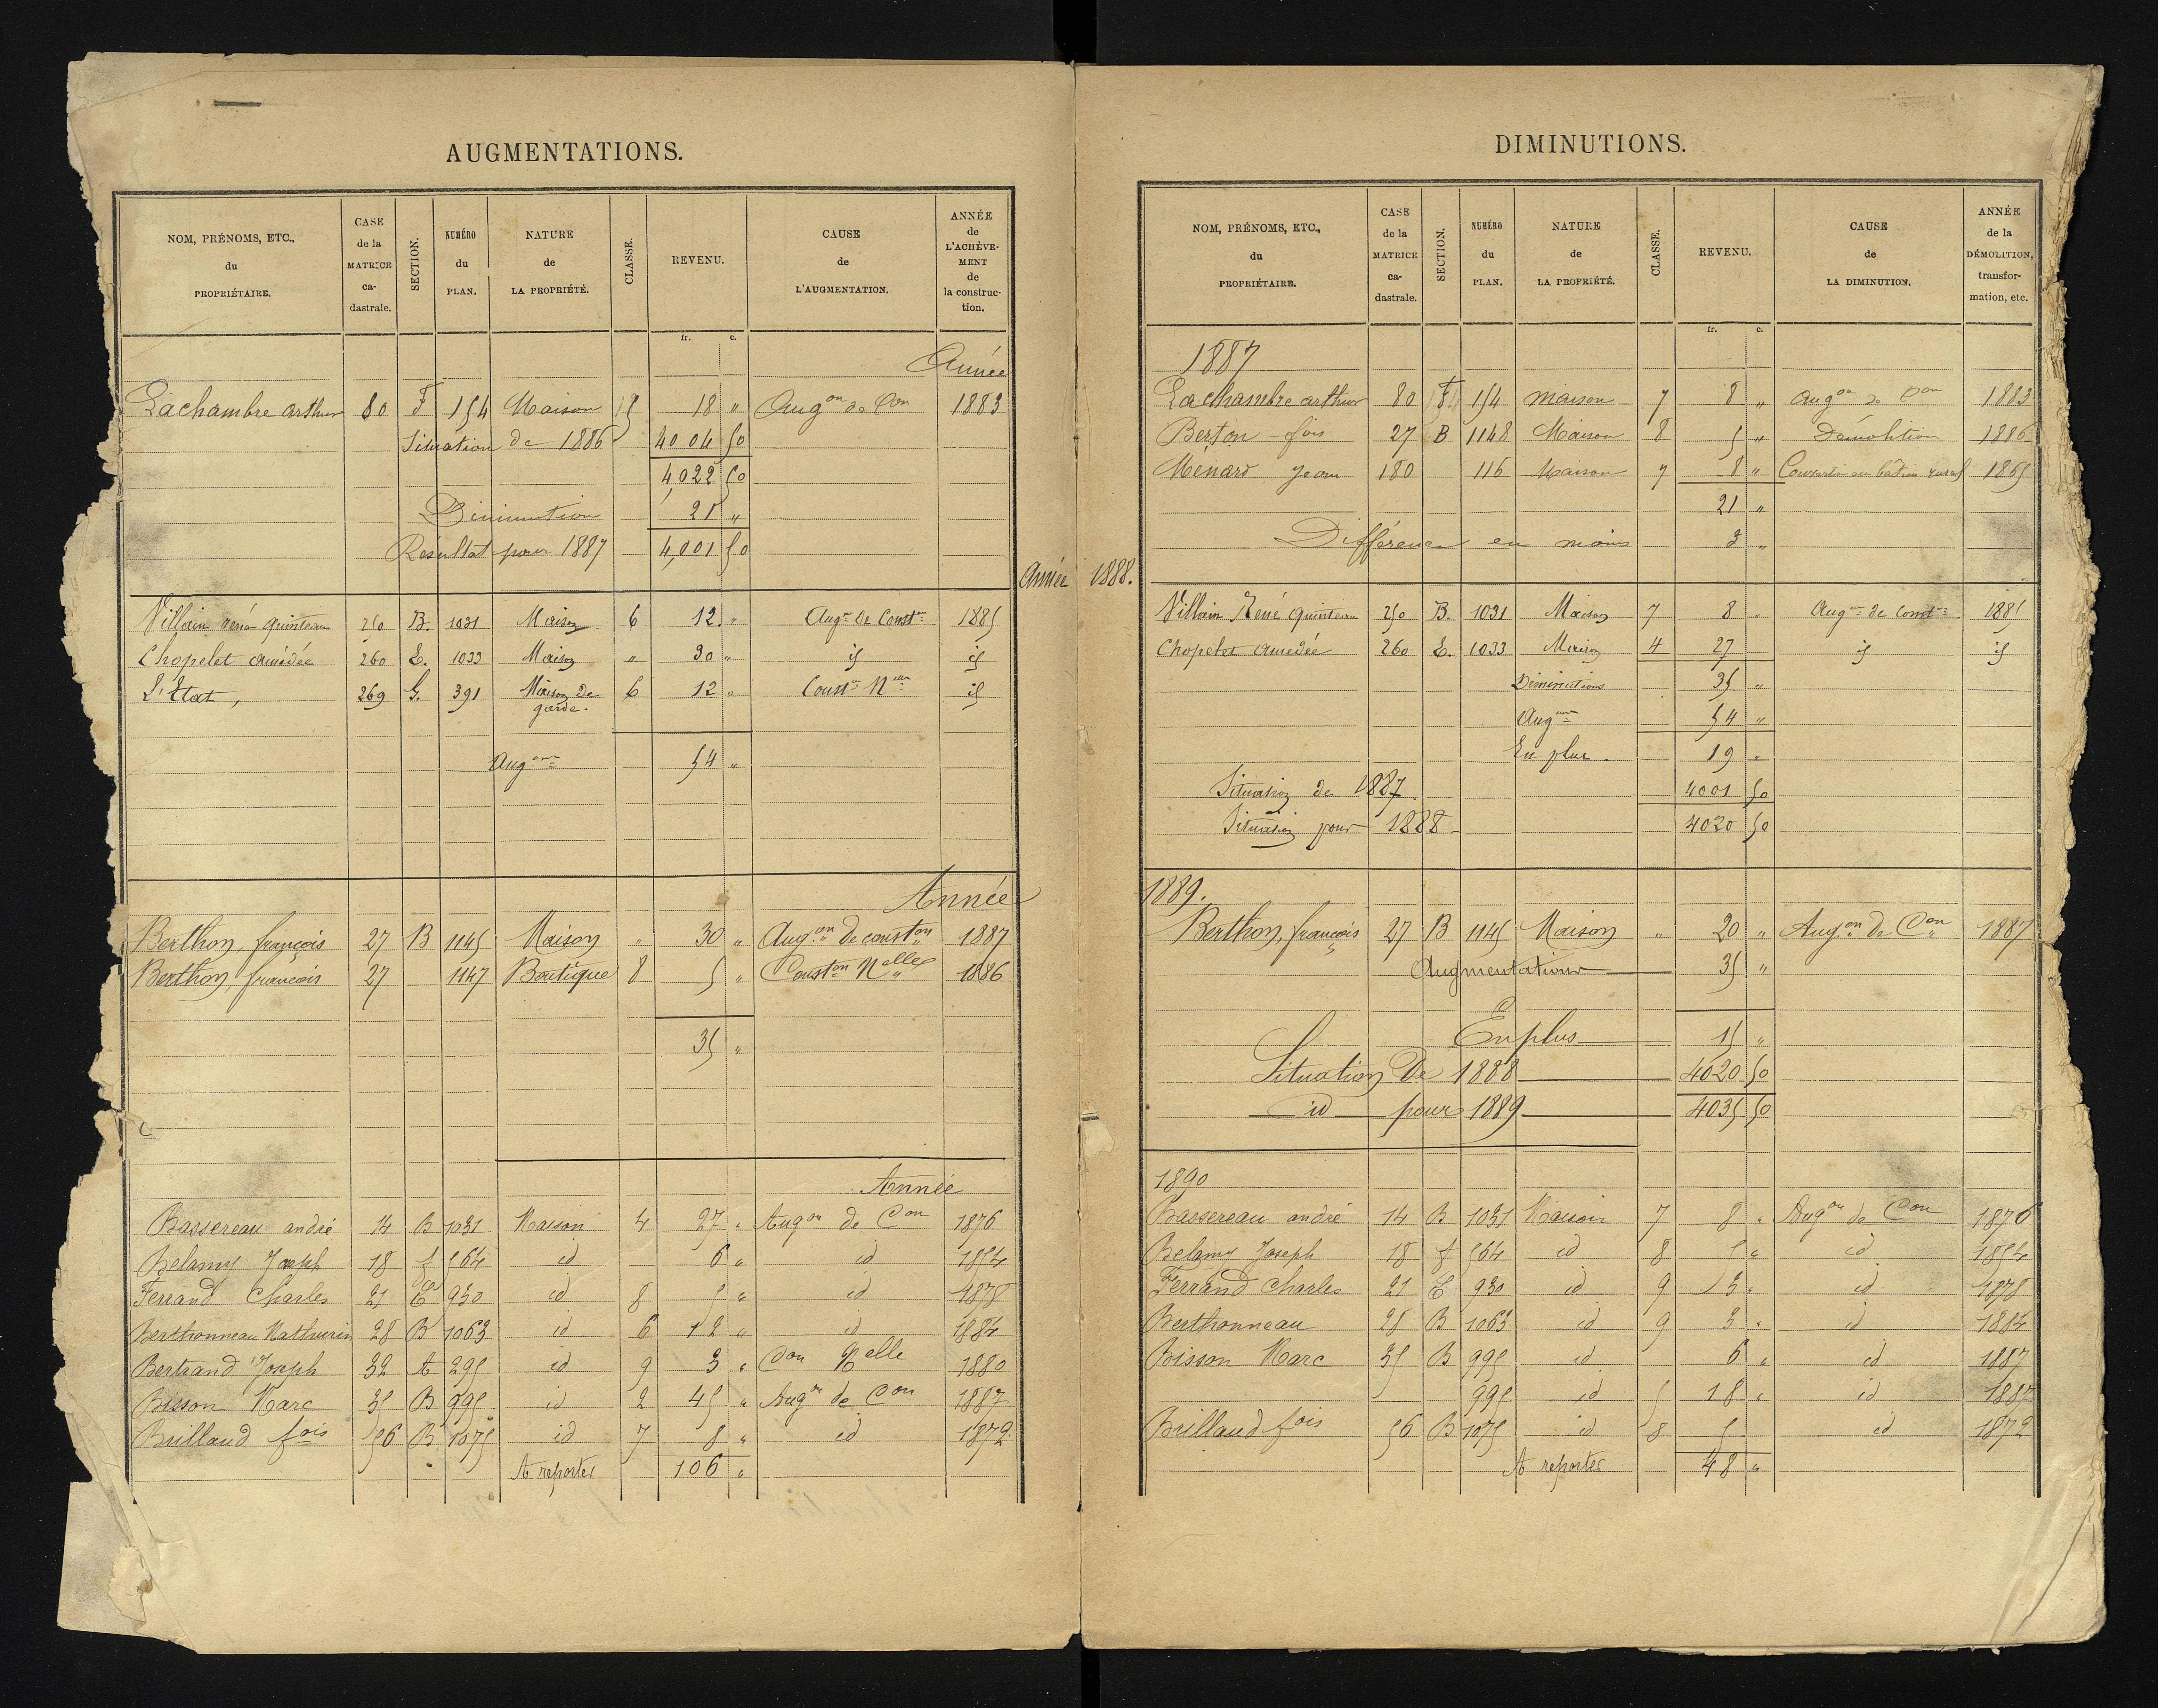 AUGMENTATIONS.
NOM, PRÉNOMS, ETC., du PROPRIÉTAIRE. CASE de la MATRICE ca-dastrale. SECTION. NUMÉRO du PLAN. NATURE de LA PROPRIÉTÉ. CLASSE. REVENU. CAUSE de L'AUGMENTATION. ANNÉE de L'ACHÈVE-MENT de la construc-tion.
fr. c.
Année
Lachambre arthur 80 F 154 Maison 5 18 " Aug on de Con 1883
Situation de 1886 4004 50
4022 50
Diminution 21 "
Résultat pour 1887 4,001 50
Année
Villain réné quinteau 250 B. 1031 Maison 6 12 " Aug on de Const on 1885
Chopelet amédée 260 E. 1033 Maison " 30 " id id
L'État, 269 G. 391 Maison de garde. 6 12 " Const on N elle id
Aug ons 54 "
Année
Berthon, françois 27 B 1145 Maison " 30 " Aug.on de const on 1887
Berthon, françois 27 1147 Boutique 8 5 " Const on N elle 1886
35 "
Année
Bassereau andré 14 B 1031 Maison 4 27 " Aug on de Con 1876
Belamy Joseph 18 f 564 id 6 " id 1854
Ferrand Charles 21 E 930 id 8 5 " id 1878
Berthonneau Mathurin 28 B 1063 id 6 12 " id 1884
Bertrand Joseph 32 A 295 id 9 3 " Con Nelle 1880
Bisson Marc 35 B 995 id 2 45 " Aug on de Con 1887
Brillaud fois 56 B 1075 id 7 8 " id 1872
A reporter 106 "
DIMINUTIONS.
NOM, PRÉNOMS, ETC., du PROPRIÉTAIRE. CASE de la MATRICE ca-dastrale. SECTION. NUMÉRO du PLAN. NATURE de LA PROPRIÉTÉ. CLASSE. REVENU. CAUSE de LA DIMINUTION. ANNÉE de la DÉMOLITION, transfor-mation, etc.
fr. c.
1887
Lachambre arthur 80 F 154 maison 7 8 " aug on de Con 1883
Berton fois 27 B 1148 Maison 8 5 " Démolition 1886
Ménard Jean 180 116 Maison 7 8 " Convertie en bâtim. rural 1865
21 "
Différence en moins 3 "
1888.
Villain René quinteau 250 B. 1031 Maison 7 8 " Aug on de Const on 1885
Chopelet amédée 260 E. 1033 Maison 4 27 id id
Diminutions 35 "
Aug ons 54 "
En plus. 19 "
Situation de 1887. 4001 50
Situation pour 1888 4020 50
1889.
Berthon, françois 27 B 1145 Maison " 20 " Aug.on de Con 1887
Augmentations 35 "
En plus 15 "
Situation de 1888 4020 50
id pour 1889 4035 50
1890
Bassereau andré 14 B 1031 Maison 7 8 " Aug on de Con 1876
Belamy Joseph 18 f 564 id 8 5 " id 1854
Ferrand Charles 21 E 930 id 9 3 " id 1878
Berthonneau 28 B 1063 id 9 3 " id 1884
Bisson Marc 35 B 995 id 6 " id 1887
995 id 5 18 " id 1887
Brillaud fois 56 B 1075 id 8 5 id 1872
A reporter 48 "